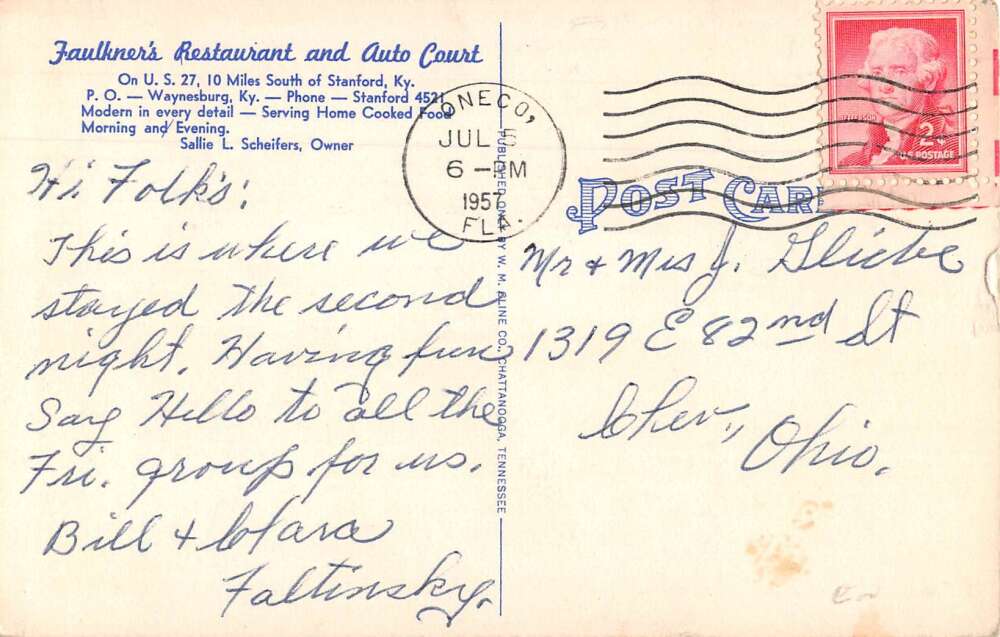 Faulkner's Restaurant and Auto Court
On U. S. 27, 10 Miles South of Stanford, Ky.
P. O. — Waynesburg, Ky. — Phone — Stanford 4521
Modern in every detail — Serving Home Cooked Food
Morning and Evening.
Sallie L. Scheifers, Owner
Hi Folk's:
This is where we
stayed the second
night. Having fun
Say Hello to all the
Fri. group for us.
Bill & Clara
Faltinsky.
PUBLISHED ONLY BY W. M. CLINE CO., CHATTANOOGA, TENNESSEE
ONECO,
JUL 5
6 – PM
1957
FLA.
JEFFERSON
2¢
U.S. POSTAGE
POST CARD
Mr & Mrs J.
1319 E 82nd St
Clev., Ohio.